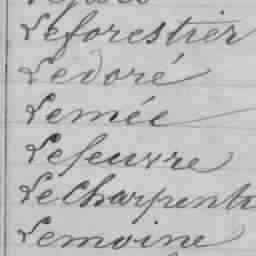 Leforestier
Ledoré
Lemée
Lefeuvre
LeCharpent
Lemoine